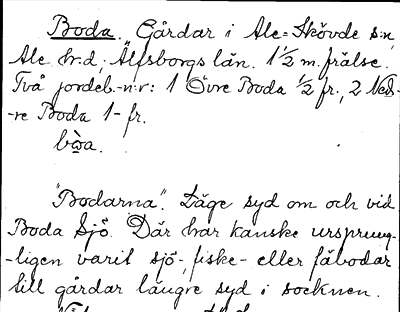 Boda. Gårdar i Ale=Skövde s:n,
Ale hr.d; Älfsborgs län. 1 1/2 m. frälse.
Två jordeb.-n:r: 1 Övre Boda 1/2 fr., 2 Ned-
-re Boda 1- fr.
bòa.
"Bodarna". Läge syd om och vid
Boda Sjö. Där har kanske ursprung-
-ligen varit sjö-, fiske- eller fäbodar
till gårdar längre syd i socknen.